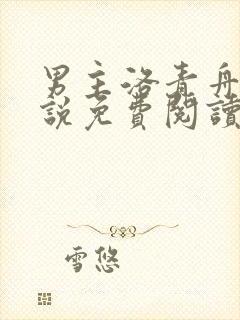 男主洛青舟
說免費閱讀
雪悠